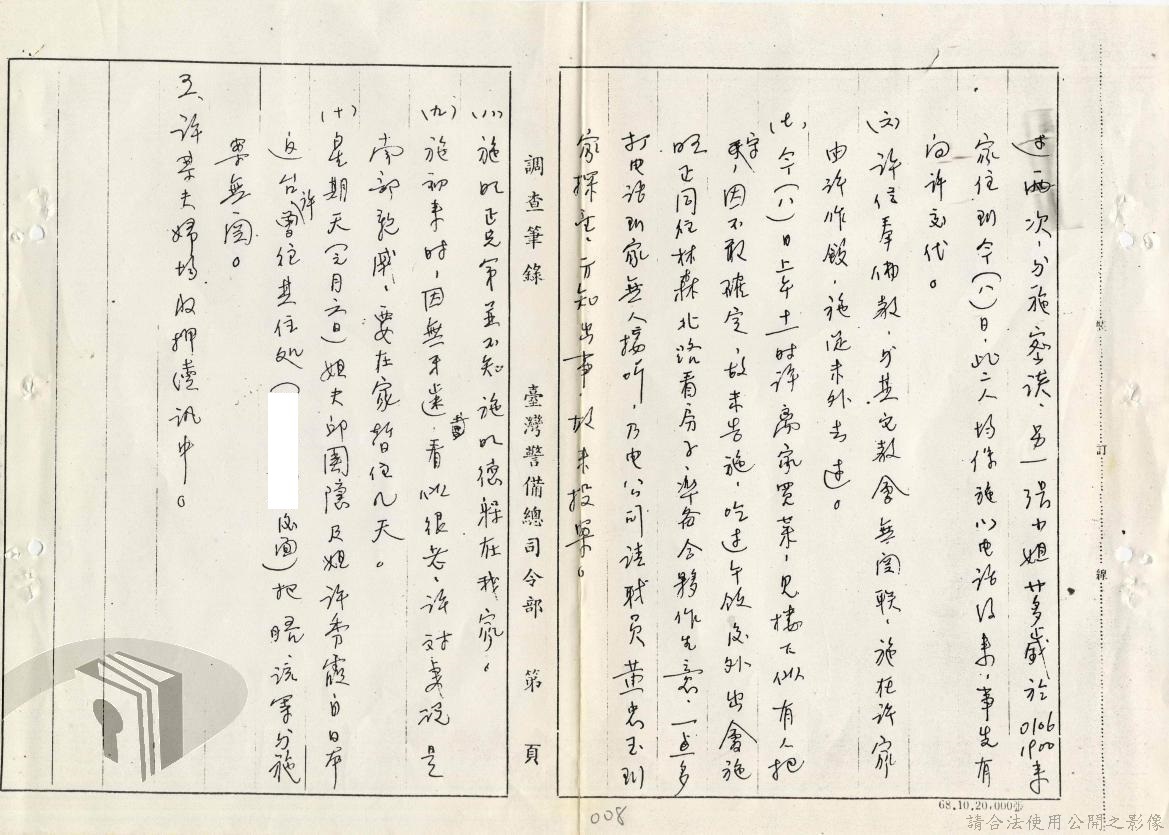 過兩次,與施密談,另一張小姐廿多歲於01061900來
家住到今(八)日,此二人均係施以电話約來,事先有
向許交代。
(六)許信奉佛教,與基督教會無関联,施在許家
由許作飯,施從未外出過。
(七)今(八)日上午十一时許離家買菜,見樓下似有人把
守,因不敢確定,故未告施,吃过午飯後外出會施
明正同往林森北路看房子,準备合夥作生意,一点多
打电话到家無人接听,乃电公司請職員黃忠玉到
家探望,方知出事,故未投案。
調查筆錄 臺灣警備總司令部 第 頁
(八)施明正兄弟並不知施明德躲在我家。
(九)施初來时,因無牙齒,看似很老,許对妻説是
南部親戚,要在家暫住几天。
(十)星期天(元月六日)姐夫邱國隱及姐許秀霞自日本
返台,許曾往其住処( 後面)把晤,該案與施
案無関。
五、許某夫婦均收押續訊中。
68.10.20,000張
裝 訂 線
008
請合法使用公開之影像